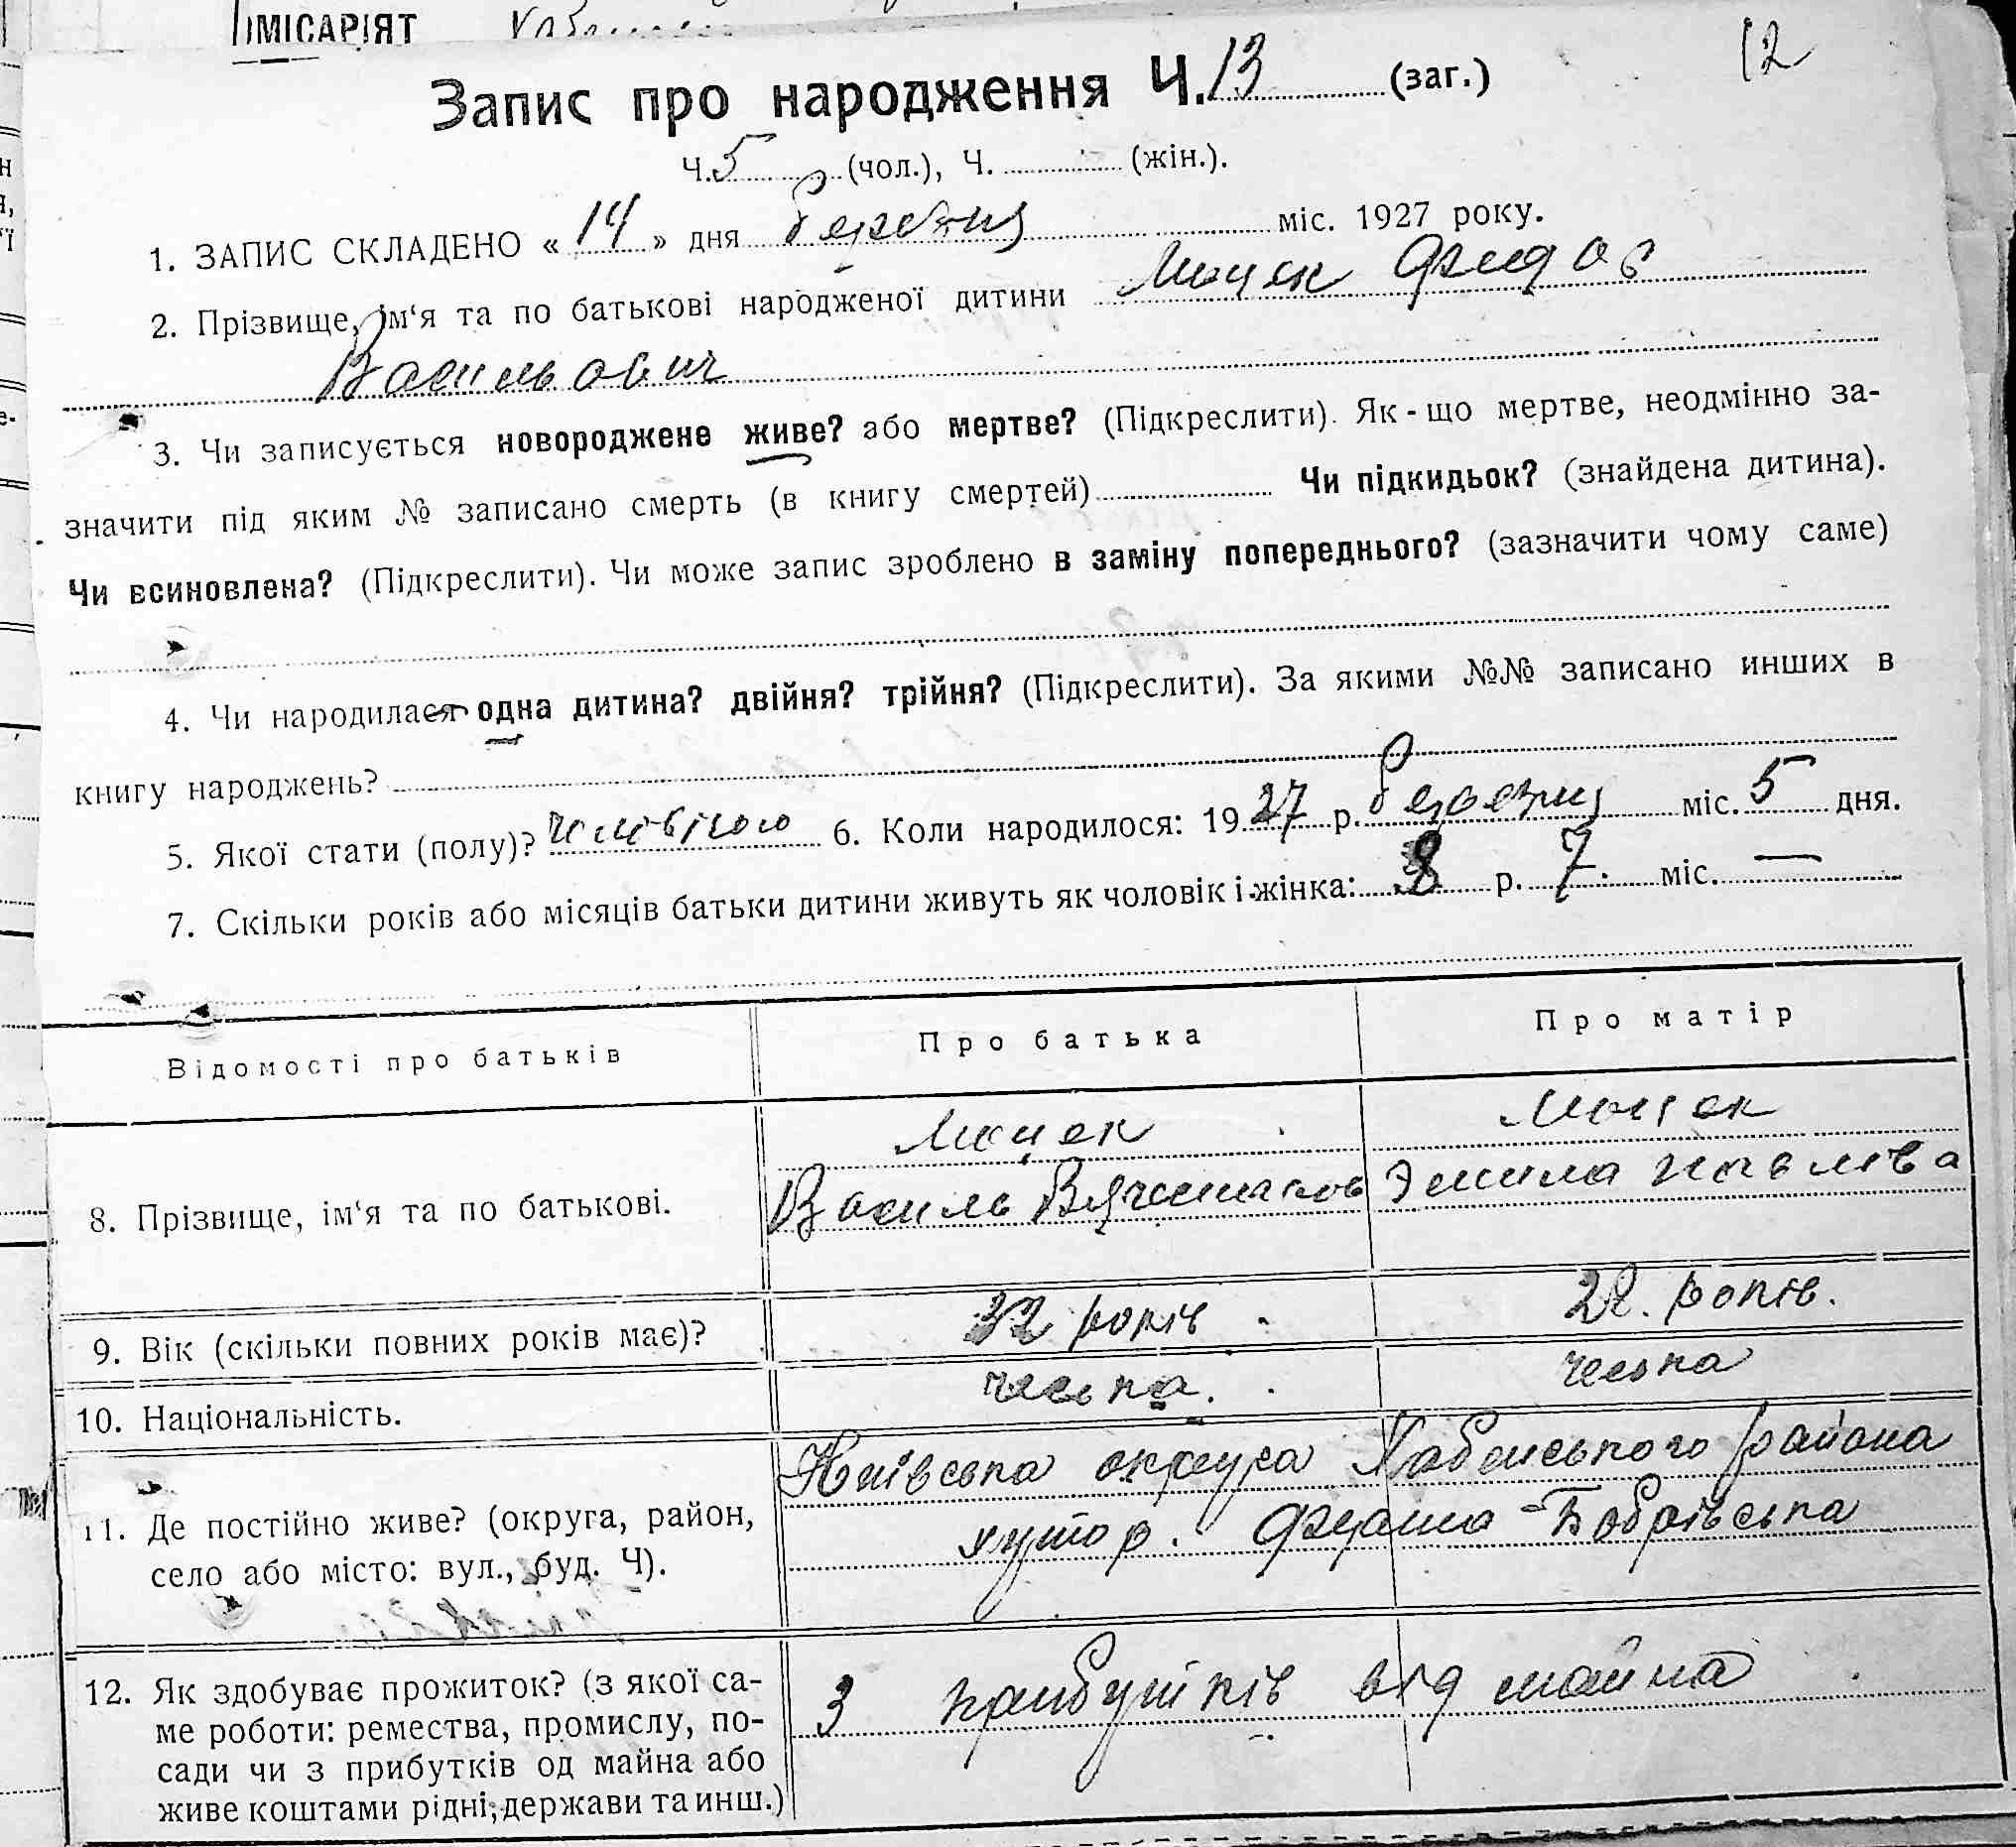 ІМІСАРІЯТ
12
Запис про народження Ч. 13 (заг.)
Ч. 5 (чол.), Ч. (жін.).
1. ЗАПИС СКЛАДЕНО « 14 » дня березня міс. 1927 року.
2. Прізвище, ім‘я та по батькові народженої дитини Моцек Фидор
Васильович
3. Чи записується новороджене живе? або мертве? (Підкреслити). Як - що мертве, неодмінно за-
значити під яким № записано смерть (в книгу смертей) Чи підкидьок? (знайдена дитина).
Чи всиновлена? (Підкреслити). Чи може запис зроблено в заміну попереднього? (зазначити чому саме)
4. Чи народилася одна дитина? двійня? трійня? (Підкреслити). За якими №№ записано инших в
книгу народжень?
5. Якої стати (полу)? чоловічого 6. Коли народилося: 19 27 р. березня міс. 5 дня.
7. Скільки років або місяців батьки дитини живуть як чоловік і жінка: 8 р. 7 міс. —
Відомості про батьків Про батька Про матір
Моцек Моцек
8. Прізвище, ім‘я та по батькові. Василь Эмила Павлева
9. Вік (скільки повних років має)? 32 років 28. років.
10. Національність. чеська. чеська
Київська округа Хабенського района
11. Де постійно живе? (округа, район,
село або місто: вул., буд. Ч). хутор. -Бобрівська
12. Як здобуває прожиток? (з якої са-
ме роботи: ремества, промислу, по-
сади чи з прибутків од майна або
живе коштами рідні, держави та инш.)
З прибутків від майна